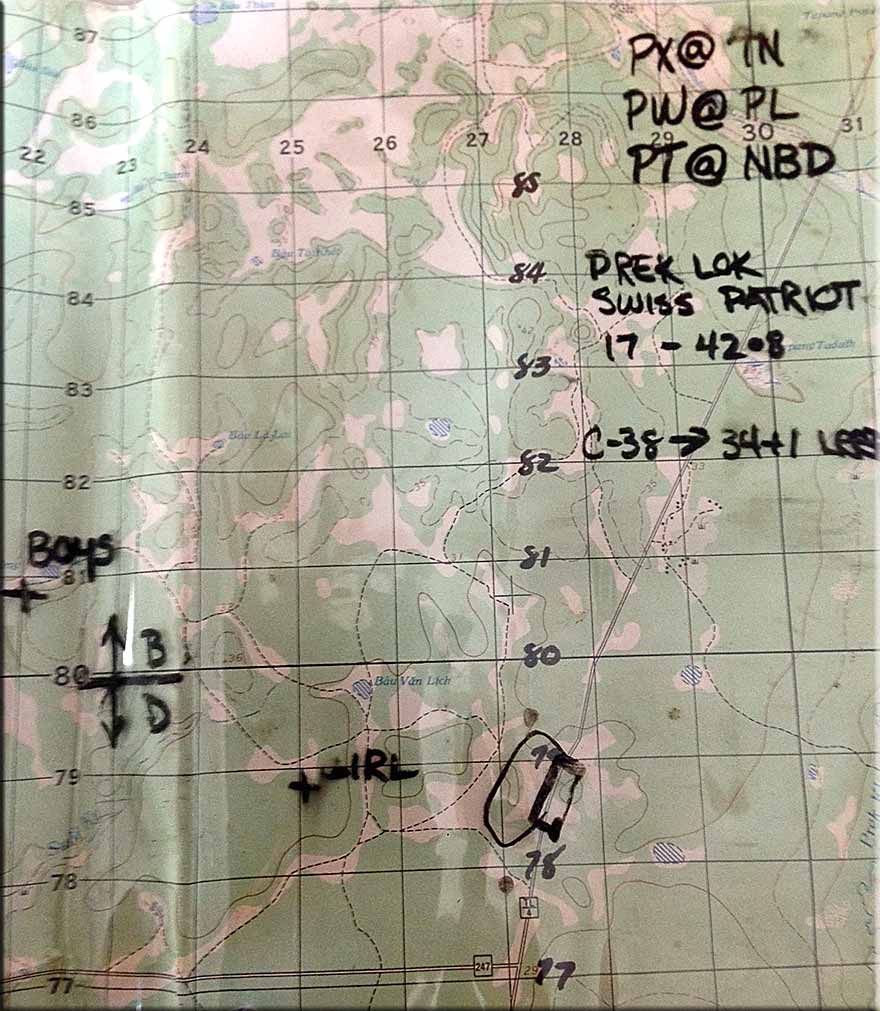 Bàu Thâm
87
PX@ TN
86
PW@ PL
22
23
24
25
26
27
28
29
30
31
PT@ NBD
85
85
84
84
PREK LOK
SWISS PATRIOT
17 - 42●8
83
83
C-38 → 34+1 LESS
82
82
33
Boys
81
81
31
B
80
80
36
Bàu Văn Lịch
D
79
79
GIRL
78
78
TL
4
247
77
77